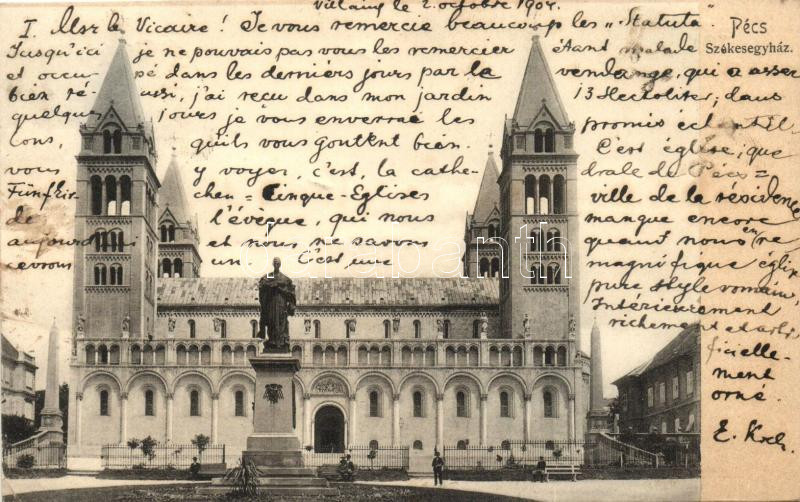 Villány le 2. octobre 1904.
I. Msr le Vicaire! Je vous remercie beaucoup les "Statuta"
Jusqu'ici je ne pouvais pas vous les remercier étant malade
et occupé dans les derniers jours par la vendange, qui a assez
bien réussi, j'ai reçu dans mon jardin 13 Hectoliter, dans
quelques jours je vous enverrai les promis échantil
lons, qu'ils vous goutent bien. C'est église, que
vous y voyez, c'est, la cathedrale de Pécs =
Fünfkirchen = Cinque-Eglises ville de la résidence
de l'évêque, qui nous manque encore
aujourd'hui et nous ne savons quand nous en
aurons un C'est une magnifique église
pure style romain,
Intérieurement
richement et arti
ficielle-
ment
orné.
E. Koch
Pécs
Székesegyház.
Darabanth